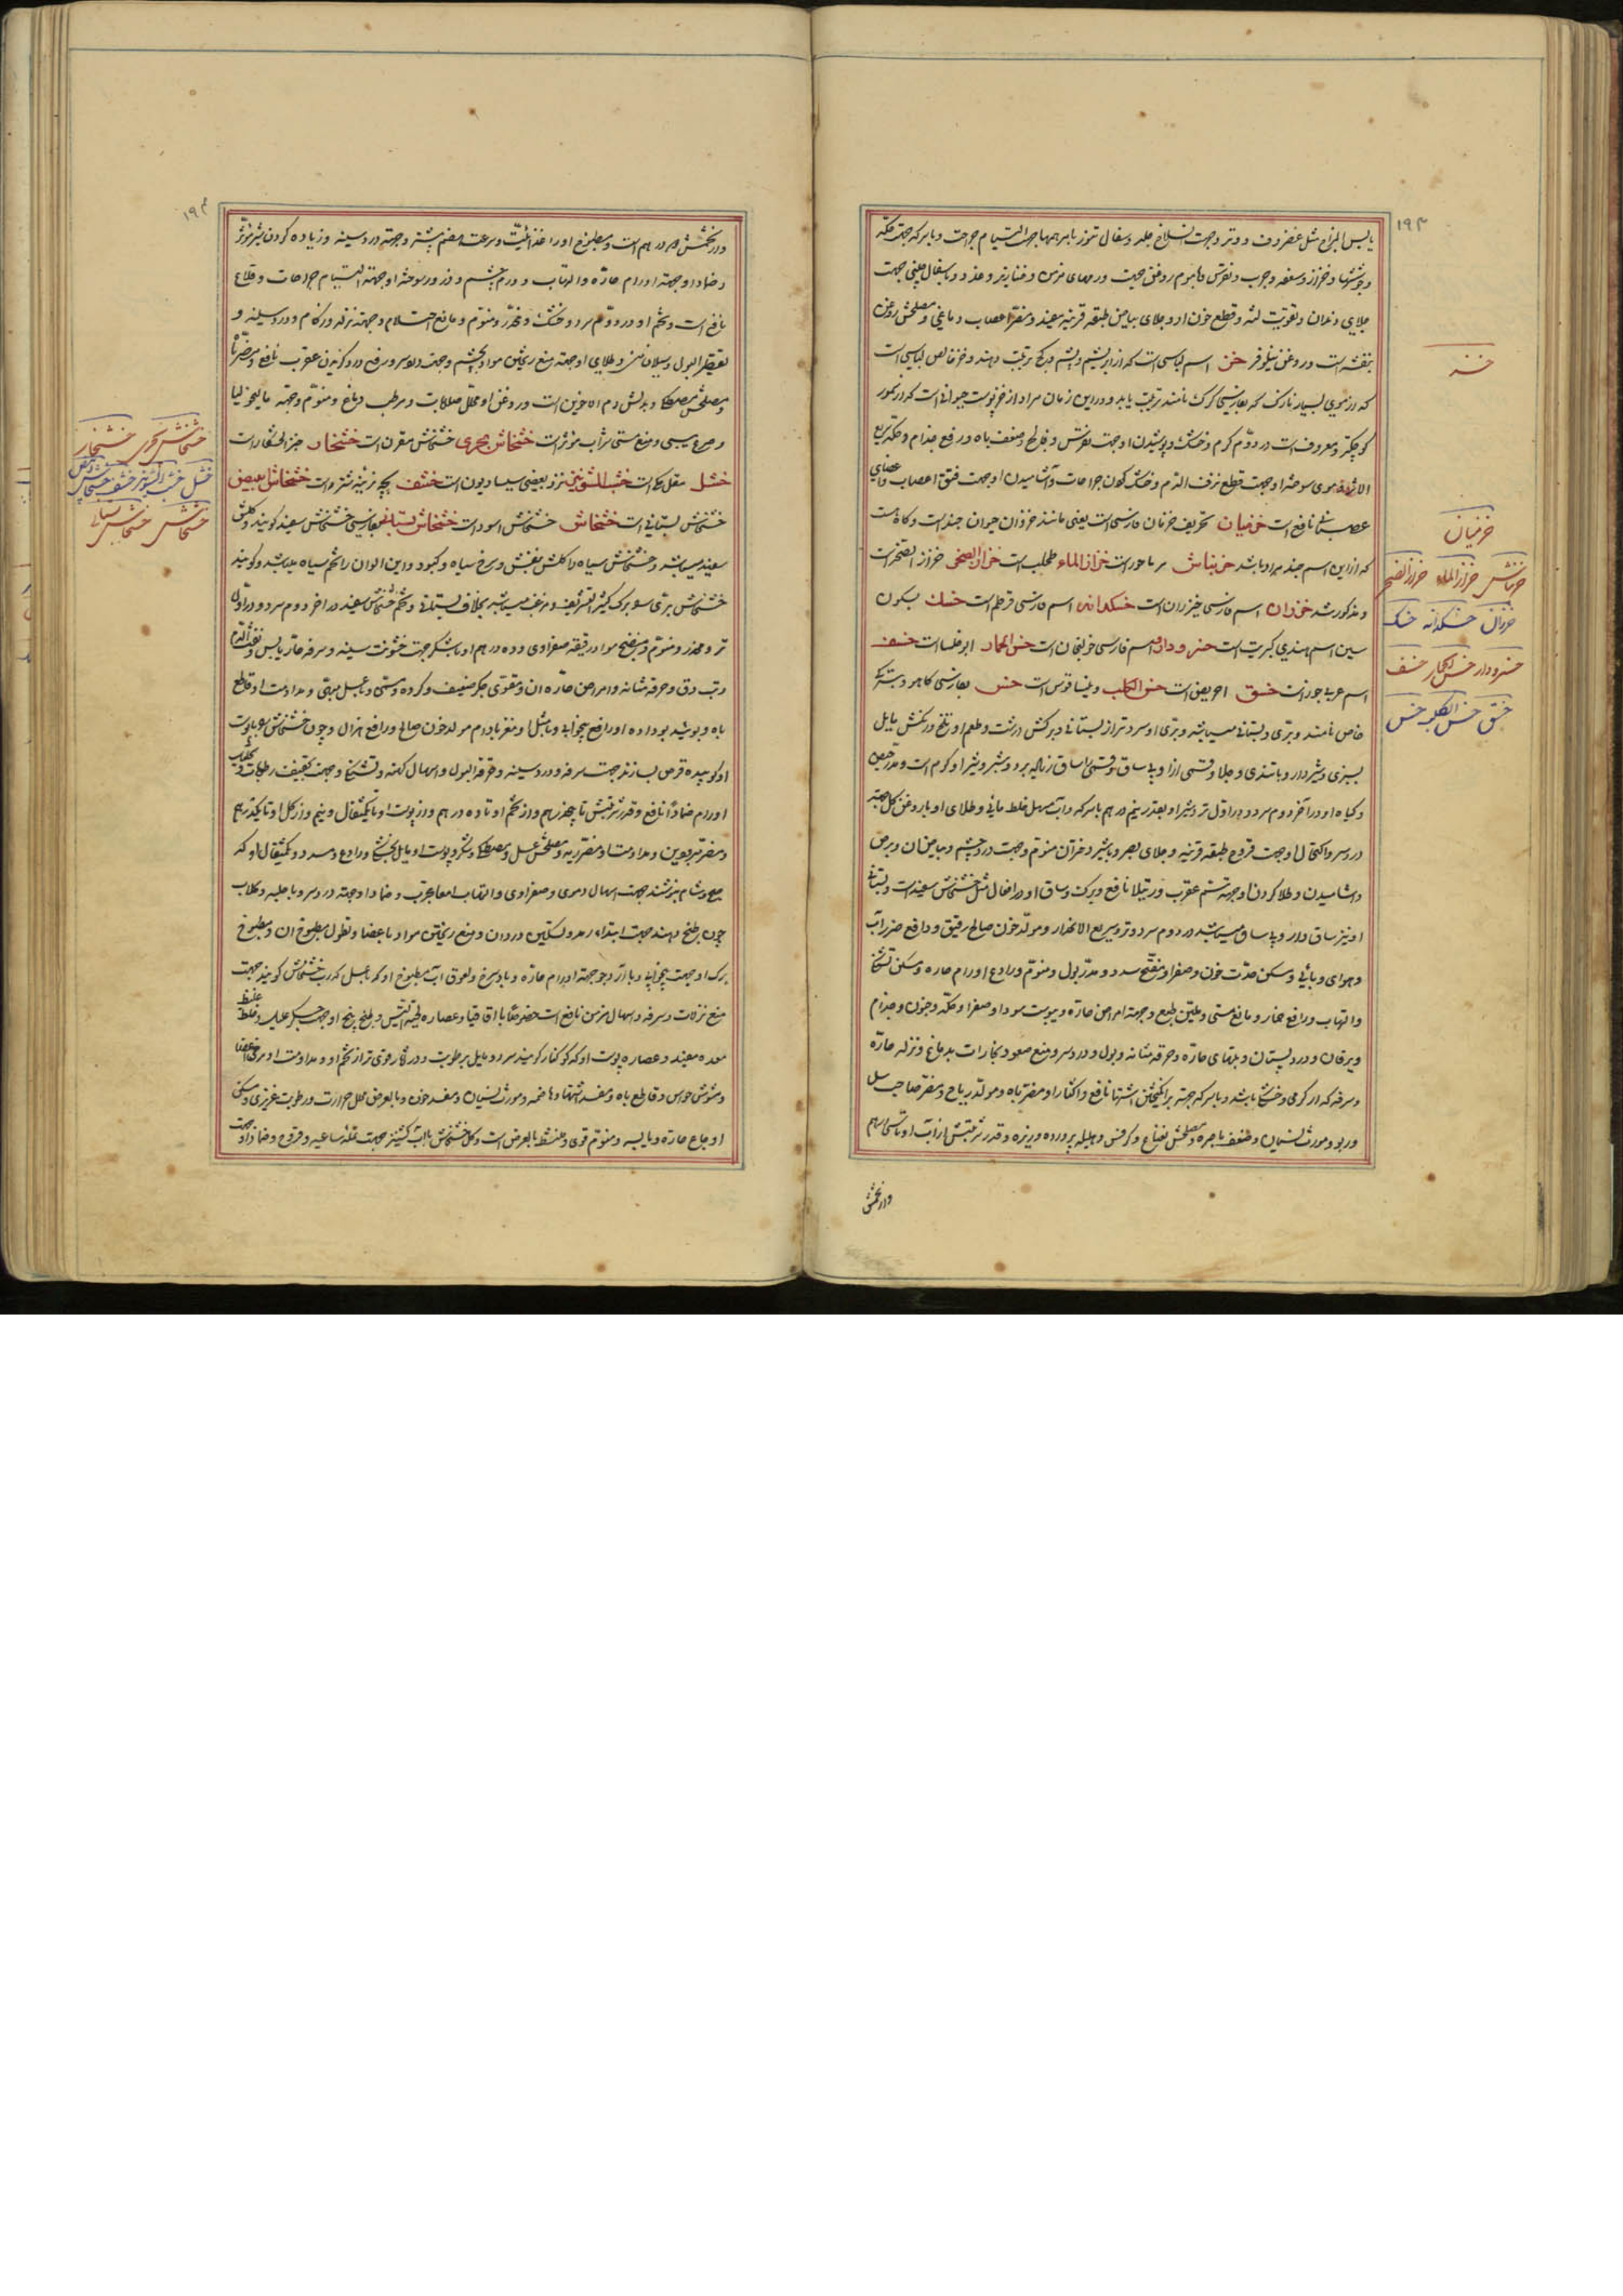 ۱۹۳
یابس المزاج مثل غضروف و دوتر و جهت انسلاخ جلد و سفال تنور با مرهمها جهت التیام جراحت و با سرکه جهت حکه
و جوششها و خزاز و سعفه و جرب و نقرس با موم روغن جهت ورمهای مزمن و خنازیر و غدد و با سفال چینی جهت
جلای دندان و تقویت لثه و قطع خون او و جلای بیاض طبقه قرنیه مفید و مضر اعصاب دماغی و مصلحش روغن
بنفشه است و روغن نیلوفر خز اسم لباسی است که از ابریشم و پشم بز کج ترتیب دهند و خز خالص لباسی است
که از موی بسیار نازک که بفارسی کرک نامند ترتیب یابد و در این زمان مراد از خز پوست حیوانی است که از سمور
کوچکتر و معروف است در دوم گرم و خشک و پوشیدن او جهت نقرس و فالج و ضعف باه و رفع جذام و حکه
موی سوخته او جهت قطع نزف الدم و خشک کردن جراحات و آشامیدن او جهت فتق اعصاب
عصب نافع است خزمیان تحریف خزمان فارسی است یعنی مانند خز و آن حیوان جند است و گاه است
که از این اسم جند مراد باشد خزیناس مرماحوز است خزاز الماء طحلب است خزاز الصخر حزاز الصخر است
و مذکور شد خزران اسم فارسی خیزران است خسکدانه اسم فارسی قرطم است خسک بسکون
سین اسم هندی کبریت است خسرو دارو اسم فارسی خولنجان است خس الحمار ابوخلسا است خسف
اسم عربی جوز است خسق احریض است خس الکلب دیپساقوس است خس بفارسی کاهو و بترکی
خاص نامند و بری و بستانی میباشد و بری او سردتر از بستانی و برکش درشت و طعم او تلخ و رنکش مایل
بسبزی و شیردار و با تندی و جلا و قسمی از او
و کیاه او در آخر دوم سرد و در اول تر و شیر او بقدر نیم درهم با سرکه و آب مسهل خلط مائی و طلای او با روغن کل جهت
درد سر و اکتحال او جهت قروح طبقه قرنیه و جلای بصر و با شیر دختران منوم و جهت درد چشم و بیاض آن و برص
و آشامیدن و طلا کردن او جهت سم عقرب و رتیلا نافع و برک و ساق او در افعال مثل خشخاش سفید است و بستانی
او نیز ساق دار و بی ساق میباشد در دوم سرد و تر و سریع الانحدار و مولد خون صالح رقیق و دافع ضرر آب
و هوای وبائی و مسکن حدت خون و صفرا و مفتح سدد و مدر بول و منوم و رادع اورام حاره و مسکن تشنکی
و التهاب و رافع خمار و مانع مستی و ملین طبع و جهت امراض حاره و یبوست سودا و صفرا و حکه و جنون و جذام
و یرقان و درد پستان و تبهای حاره و حرقه مثانه و بول و درد سر و منع صعود بخارات بدماغ و نزله حاره
و سرفه که از گرمی و خشکی باشد و با سرکه جهت برانکیختن اشتها نافع و اکثار او مضر باه و مولد ریاح و مضر صاحب سل
و ربو و مورث نسیان و ضعف باصره و مصلحش نعناع و کرفس و هلیله پرورده و زیره و قدر شربتش از آب او تا سی درهم
و از تخمش
خز
خزمیان
خزیناس خزاز الماء خزاز الصخر
خزران خسکدانه خسک
خسرو دارو خس الحمار خسف
خسق خس الکلب خس
۱۹۴
و از تخمش ده درهم است و مطبوخ او را غذائیت و سرعت هضم بیشتر و جهت درد سینه و زیاده کردن شیر مؤثر
و ضماد او جهت اورام حاره و التهاب و ورم چشم و ذرور سوخته او جهت التیام جراحات و قلاع
نافع است و تخم او در دوم سرد و خشک و مخدر و منوم و مانع احتلام و جهت نزله و زکام و درد سینه و
تقطیر البول و سیلان منی و طلای او جهت منع ریختن مواد بچشم و جهت درد سر و رفع درد کزیدن عقرب نافع و مضر باه
و مصلحش مصطکی و بدلش دم الاخوین است و روغن او محلل صلابات و مرطب دماغ و منوم و جهت مالیخولیا
و صرع یبسی و منع مستی شراب مؤثر است خشخاش بحری خشخاش مقرن است خشنخار حب الخشخار است
خشل مقل مکی است خشب الشونیز نزد بعضی سیسارون است خشف خشخاش ابیض
خشخاش بستانی است خشخاش خشخاش اسود است خشخاش بستانی بفارسی خشخاش سفید کویند و کلش
سفید میباشد و خشخاش سیاه را کلش بنفش و سرخ و سیاه و کبود و این الوان را تخم سیاه میباشد و کویند
خشخاش بری سوی برک کثیر التشریف و مزغب میباشد بخلاف بستانی و تخم خشخاش سفید در آخر دوم سرد و در اول
تر و مخدر و منوم و منضج مواد رقیقه صفراوی و ده درهم او با شکر جهت خشونت سینه و سرفه حار یابس و نفث الدم
و تب دق و حرقه مثانه و امراض حاره آن و مقوی جکر ضعیف و کرده و مسمن و با عسل مبهی و مداومت او قاطع
باه و بو داده او رافع بیخوابی و با مثل او مغز بادام مولد خون صالح و رافع هزال و چون خشخاش را با پوست
او کوبیده قرص بسازند جهت سرفه و درد سینه و حرقه البول و اسهال کهنه و تشنکی و جهت تجفیف رطوبات و
اورام ضماداً نافع و قدر شربتش تا پنجدرهم و از تخم او تا ده درهم و از پوست او تا یکمثقال و نیم و از کل او تا یکدرهم
و مضر مبرودین و مداومت او مضر ریه و مصلحش عسل و مصطکی و شکر و پوست او مایل بخشکی و رادع و مسدد و یکمثقال او که
صبح و شام بنوشند جهت اسهال دموی و صفراوی و التهاب امعا مجرب و ضماد او جهت درد سر و با حلبه و کلاب
چون بطبخ دهند جهت ابتداء رمد و تسکین درد آن و منع ریختن مواد باعضا و نطول مطبوخ آن و مطبوخ
برک او جهت بیخوابی و با آرد جو جهت اورام حاره و باد سرخ و لعوق آب مطبوخ او که با عسل که رب خشخاش کویند جهت
منع نزلات و سرفه و اسهال مزمن نافع است خصوصاً با اقاقیا و عصاره لحیة التیس و طبخ بیخ او جهت جکر علیل و غلیظ
معده مفید و عصاره پوست او که کوکنار کویند سرد و مایل برطوبت و در آثار قوی تر از تخم او و مداومت او مرخی اعضا
و مشوش حواس و قاطع باه و مفسد اشتها و هاضمه و مورث نسیان و مفسد خون و بالعرض محلل حرارت و رطوبت غریزی و مسکن
اوجاع حاره و یابسه و منوم قوی و منشط بالعرض است و کل خشخاش با آب کشنیز جهت نمله ساعیه و قروح و ضماد او جهت
خشخاش بحری خشنخار
خشل خشب الشونیز خشف خشخاش ابیض
خشخاش خشخاش بستانی